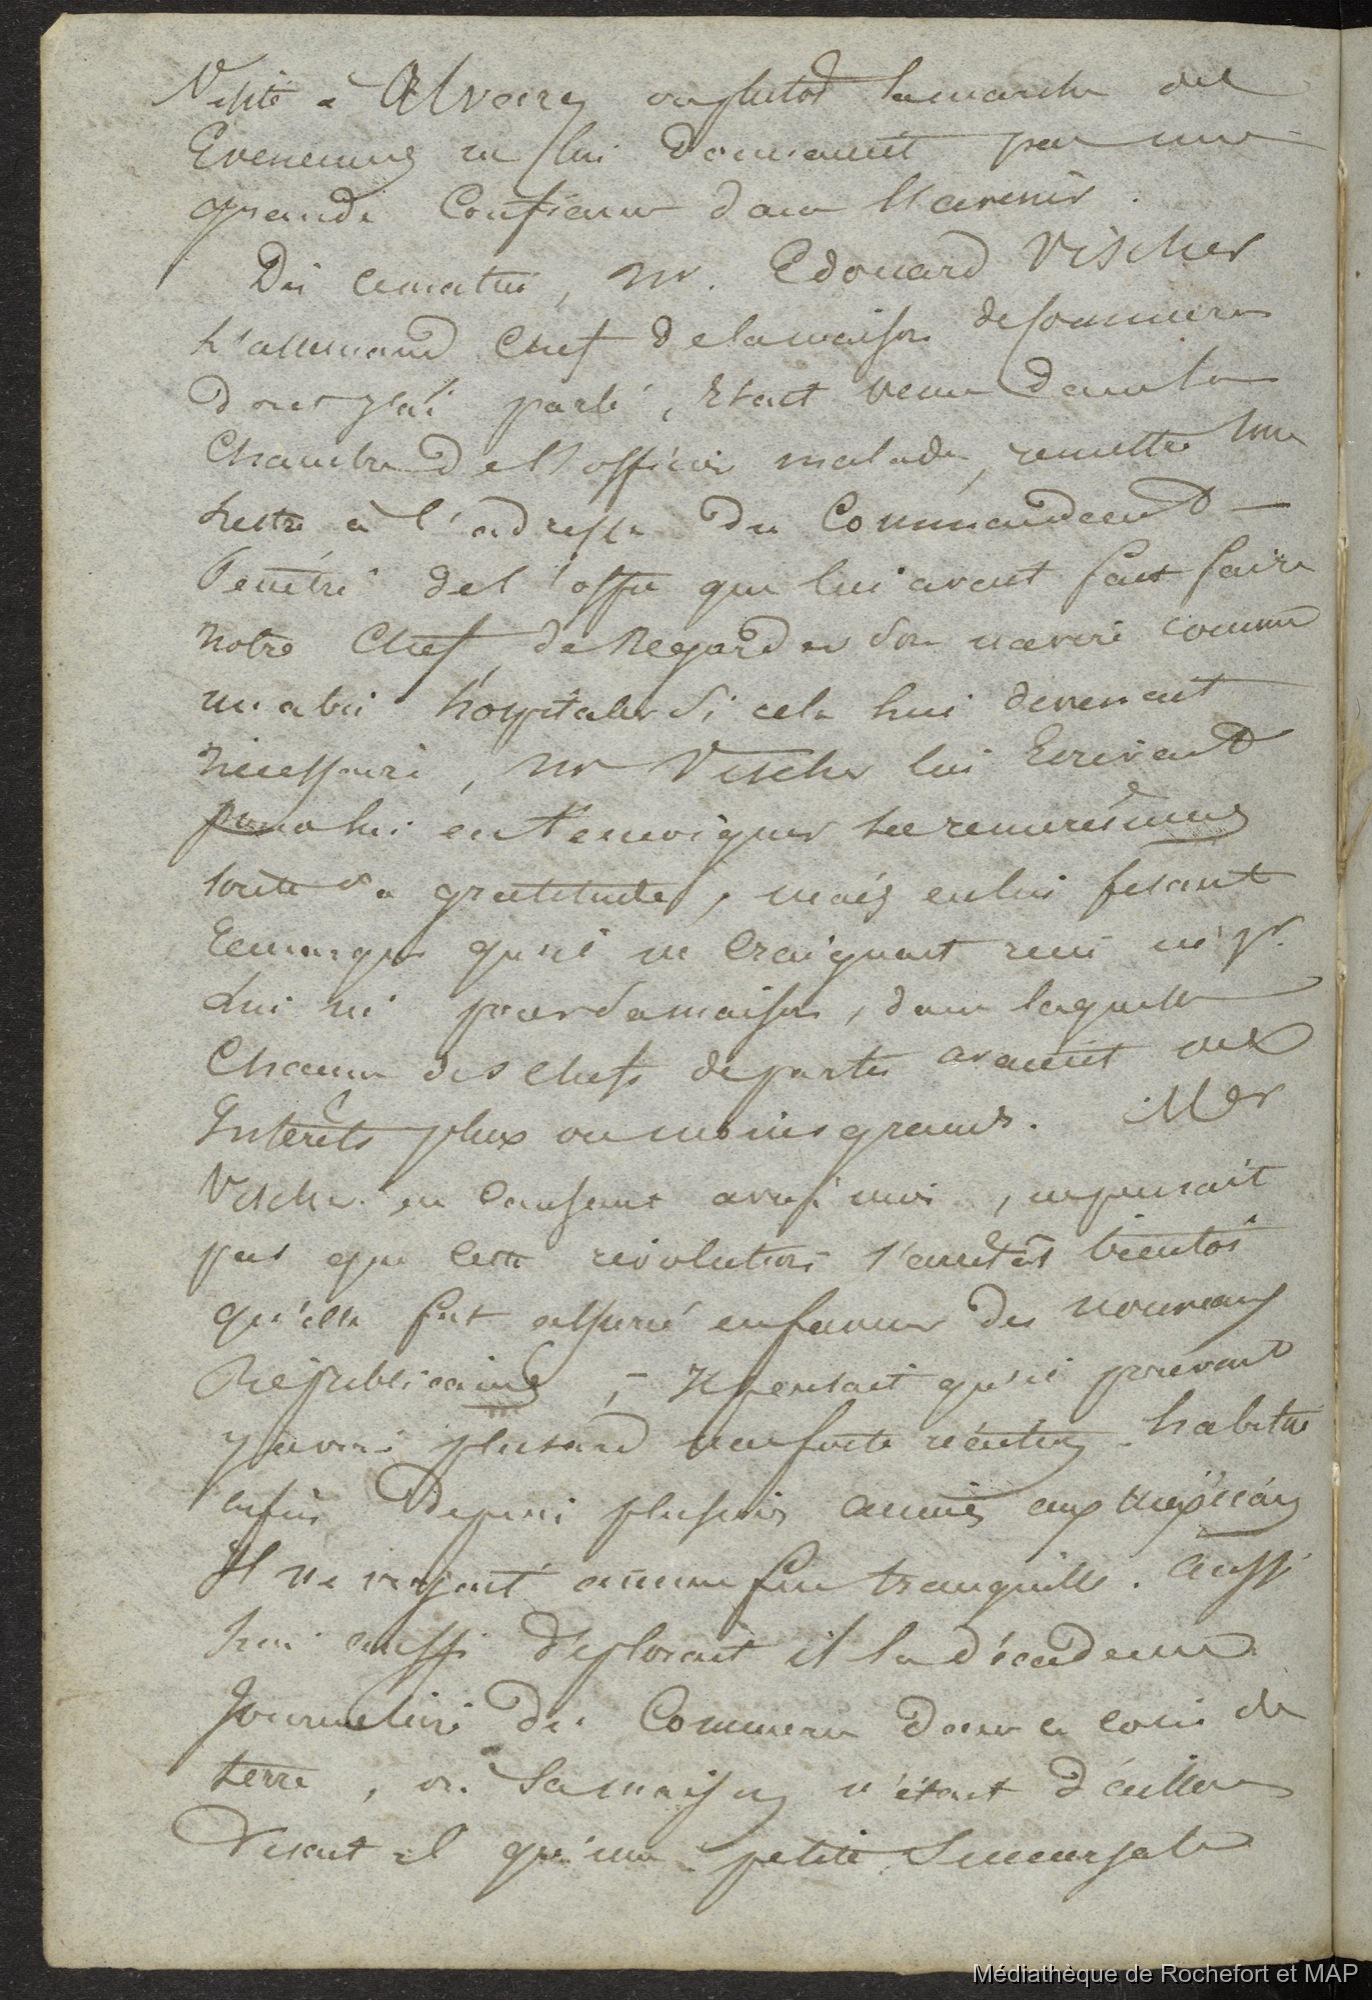 Visite à Alvarez ou plutôt la marche des
Evenemens ne lui donnaient pas une
grande Confiance dans l'avenir.
Dès ce matin, Mr. Edouard Vischer
l'allemand chef de la maison de commerce
dont j'ai parlé, était venu dans la
Chambre de l'officier malade, remettre une
lettre à l'adresse du Commandant —
Pénétré de l'offre que lui avait fait faire
notre Chef, de Regarder son navire comme
un abri hospitalier si cela lui devenait
nécessaire, Mr Vischer lui Ecrivait
pour lui en témoigner ses remerciemens
toute sa gratitude, mais en lui fesant
remarquer qu'il ne Craignait rien ni pr.
Lui ni pour sa maison, dans laquelle
Chacun des Chefs de partis avaient des
Intérêts plus ou moins grands. Mr
Vischer en Causant avec moi, ne pensait
pas que cette révolution s'arrêtât bientôt
qu'elle fut assurée en faveur des nouveaux
Républicains, - Il pensait qu'il pouvait
y avoir plus tard une forte réaction. habitué
enfin depuis plusieurs années aux Mexicains
Il ne voyait aucune fin tranquille. Aussi
lui aussi déplorait il la décadence
Journalière du Commerce dans ce coin de
terre, où sa maison n'était d'ailleurs
disait il qu'une petite Succursale
Médiathèque de Rochefort et MAP